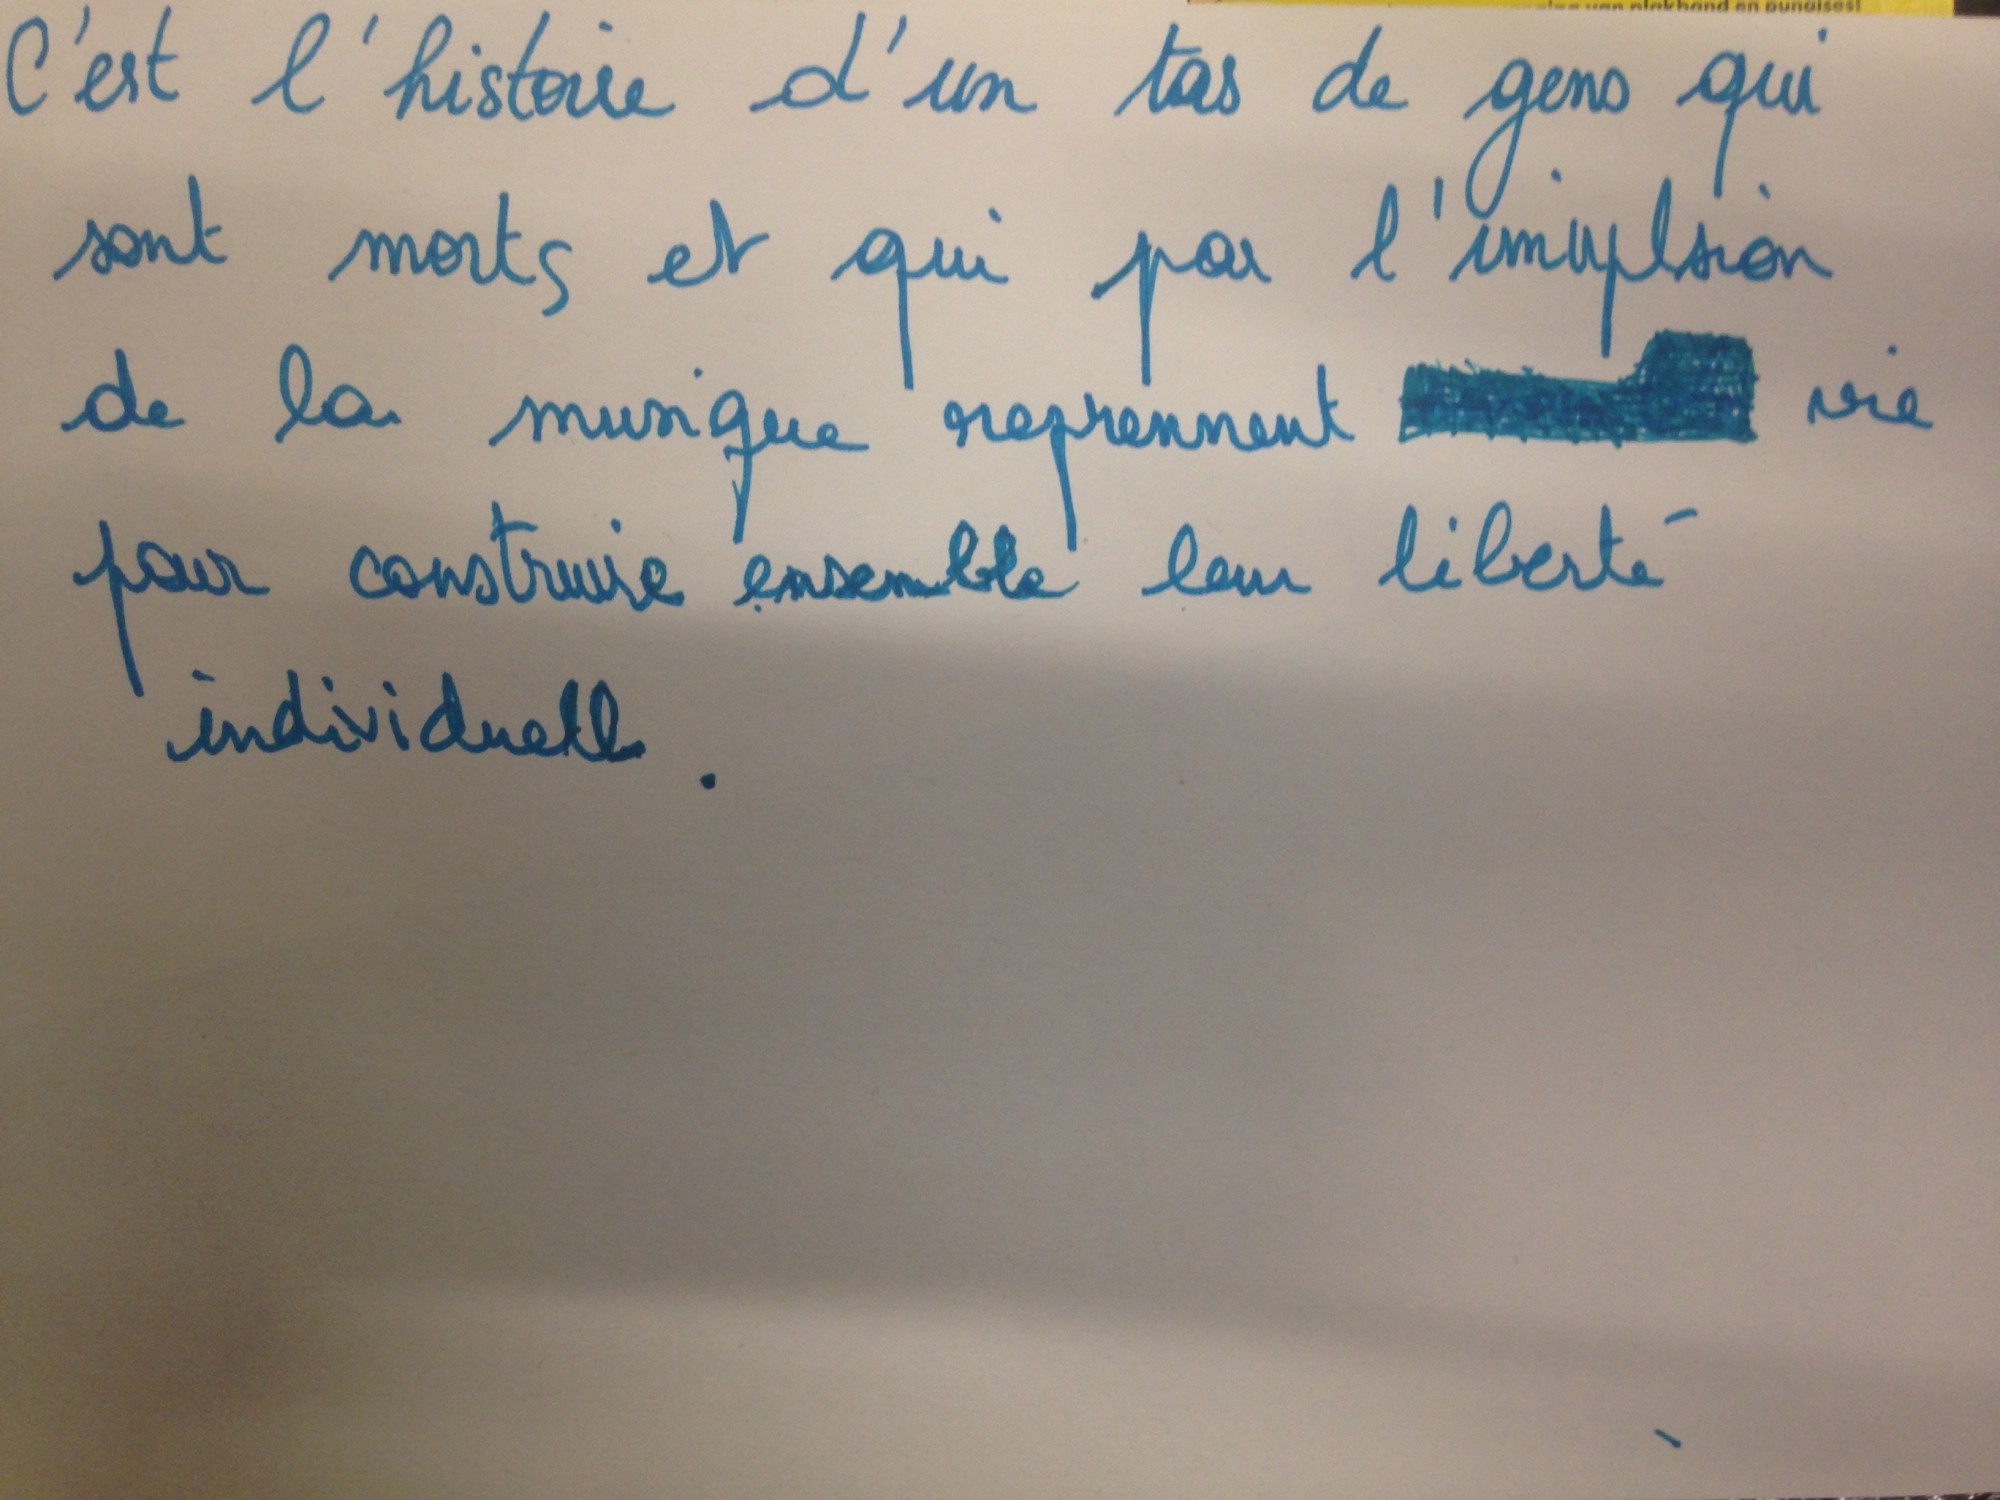 plakband en punaises!
C'est l'histoire d'un tas de gens qui
sont morts et qui par l'imuplsion
de la musique reprennent vie
pour construire ensemble leur liberté
individuelle.